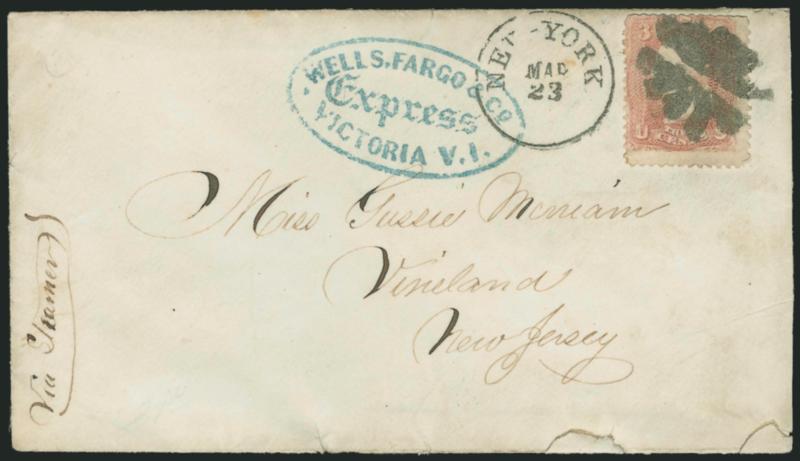 WELLS, FARGO & CO
Express
VICTORIA V.I.
NEW-YORK
MAR
23
3
U S
THREE
CENTS
Miss Gussie
Vineland
New Jersey
Via Steamer